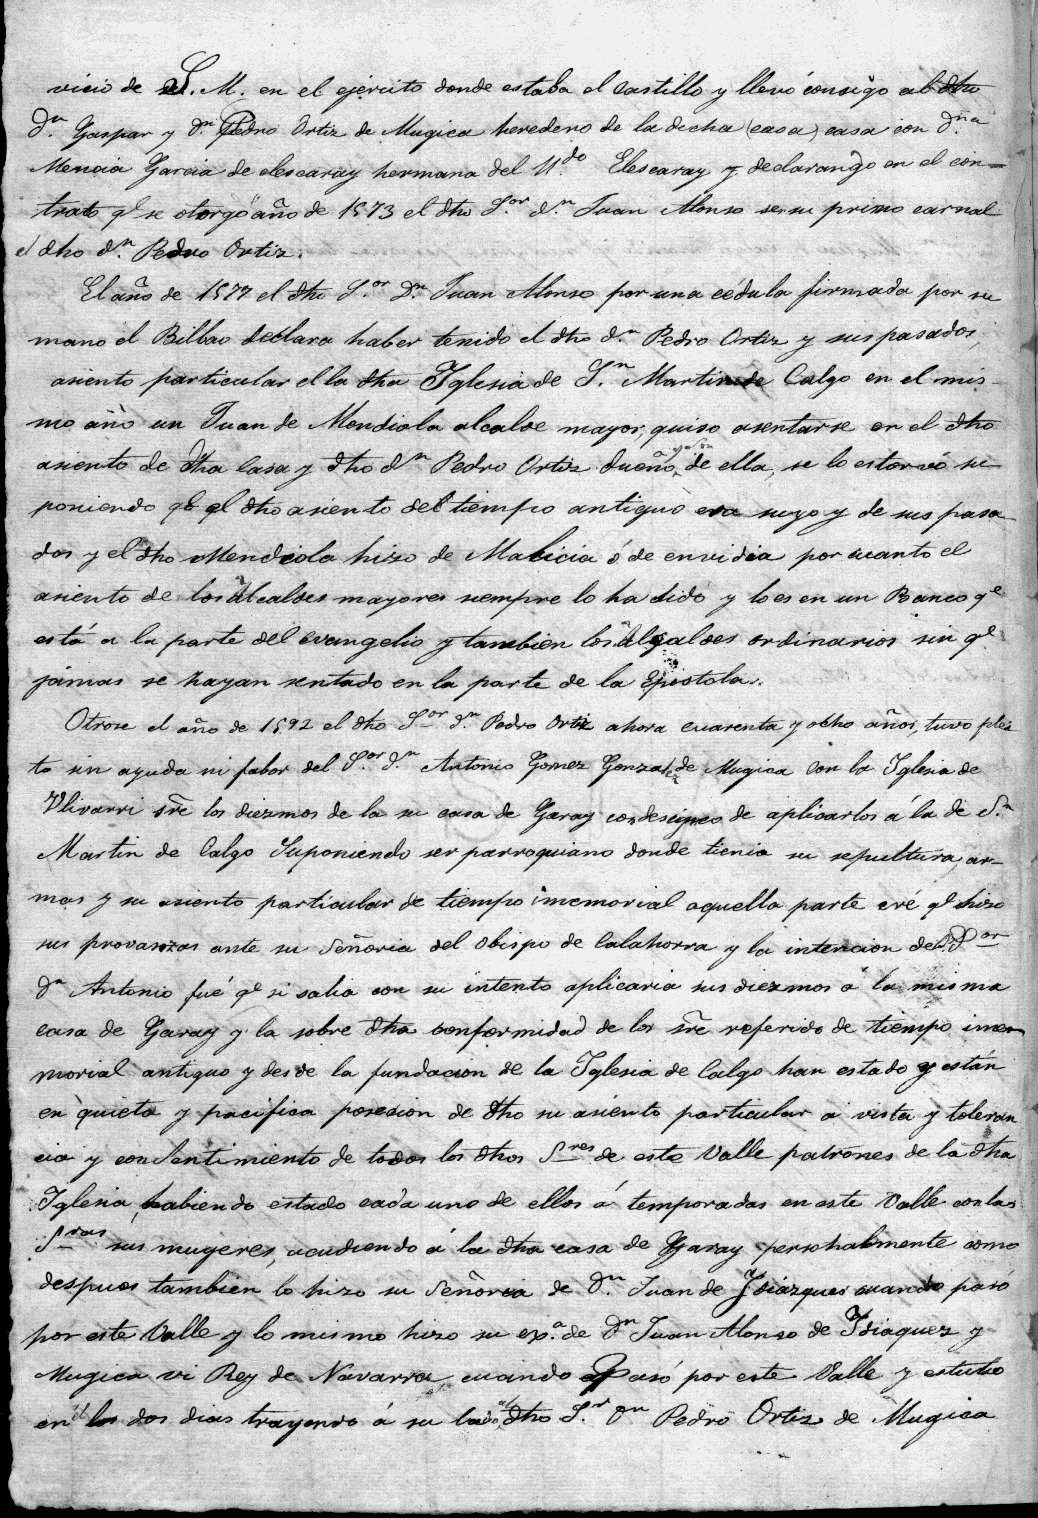 vicio de S. M. en el ejército donde estaba el castillo y llevó consigo al dho
Dn. Gaspar y dn. Pedro Ortiz de Mugica heredero de la decha (casa) casa con Dna.
Mencia Garcia de elescaray hermana del Udo Elescaray y declarando en el con-
trato ql se otorgó año de 1573 el dho Sor. dn Juan Alonso ser su primo carnal
el dho dn. Pedro Ortiz.
El año de 1577 el dho Sor Dn. Juan Alonso por una cédula firmada por su
mano el Bilbao declara haber tenido el dho dn Pedro Ortiz y sus pasados
asiento particular el la dha Iglesia de Sn. Martin de Calgo en el mis-
mo año un Juan de Mendiola alcalde mayor, quiso asentarse en el dho
asiento de dha Casa y dho dn Pedro Ortiz dueño de ella, se lo estorvó su
poniendo qe el dho asiento del tiempo antiguo era suyo y de sus pasa-
dos y el dho Mendiola hizo de Malicia ó de envidia por cuanto el
asiento de los Alcaldes mayores siempre lo ha sido y lo es en un Banco qe
está a la parte del evangelio y tambien los Algaldes ordinarios sin ql
jamas se hayan sentado en la parte de la Epistola.
Otrose el año de 1592 el dho Sor dn Pedro Ortiz ahora cuarenta y ocho años, tuvo plei
to sin ayuda ni fabor del Sor. dn Antonio Gomez Gonzalez de Mugica con la Iglesia de
Ulivarri sre los diezmos de la su casa de Garay con deseines de aplicarlos á la de Sn
Martin de Calgo Suponiendo ser parroquiano donde tienia su sepultura, ar-
mas y su asiento particular de tiempo imemorial aquella parte cré ql hizo
sus provanzas ante su Señoria del obispo de Calahorra y la intencion del Sor
dn Antonio fué qe si salia con su intento aplicaria sus diezmos á la misma
casa de Garay y la sobre dha conformidad de los sre referido de tiempo ime-
morial antiguo y desde la fundacion de la Iglesia de Calgo han estado y están
en quieta y pacifica posesion de dho su asiento particular a vista y toleran
cia y consentimiento de todos los dhos Sres de este Valle patrones de la dha
Iglesia, habiendo estado cada uno de ellos á temporadas en este Valle con las
Sras sus mugeres, acudiendo á la dha casa de Garay personalmente como
despues tambien lo hizo su Señoria de Dn. Juan de Idiazques cuando pasó
por este Valle y lo mismo hizo su exa. de Dn Juan Alonso de Idiaquez y
Mugica vi Rey de Navarra cuando Pasó por este Valle y estubo
en el los dos dias trayendo á su lado al dho Sr. Dn Pedro Ortiz de Mugica